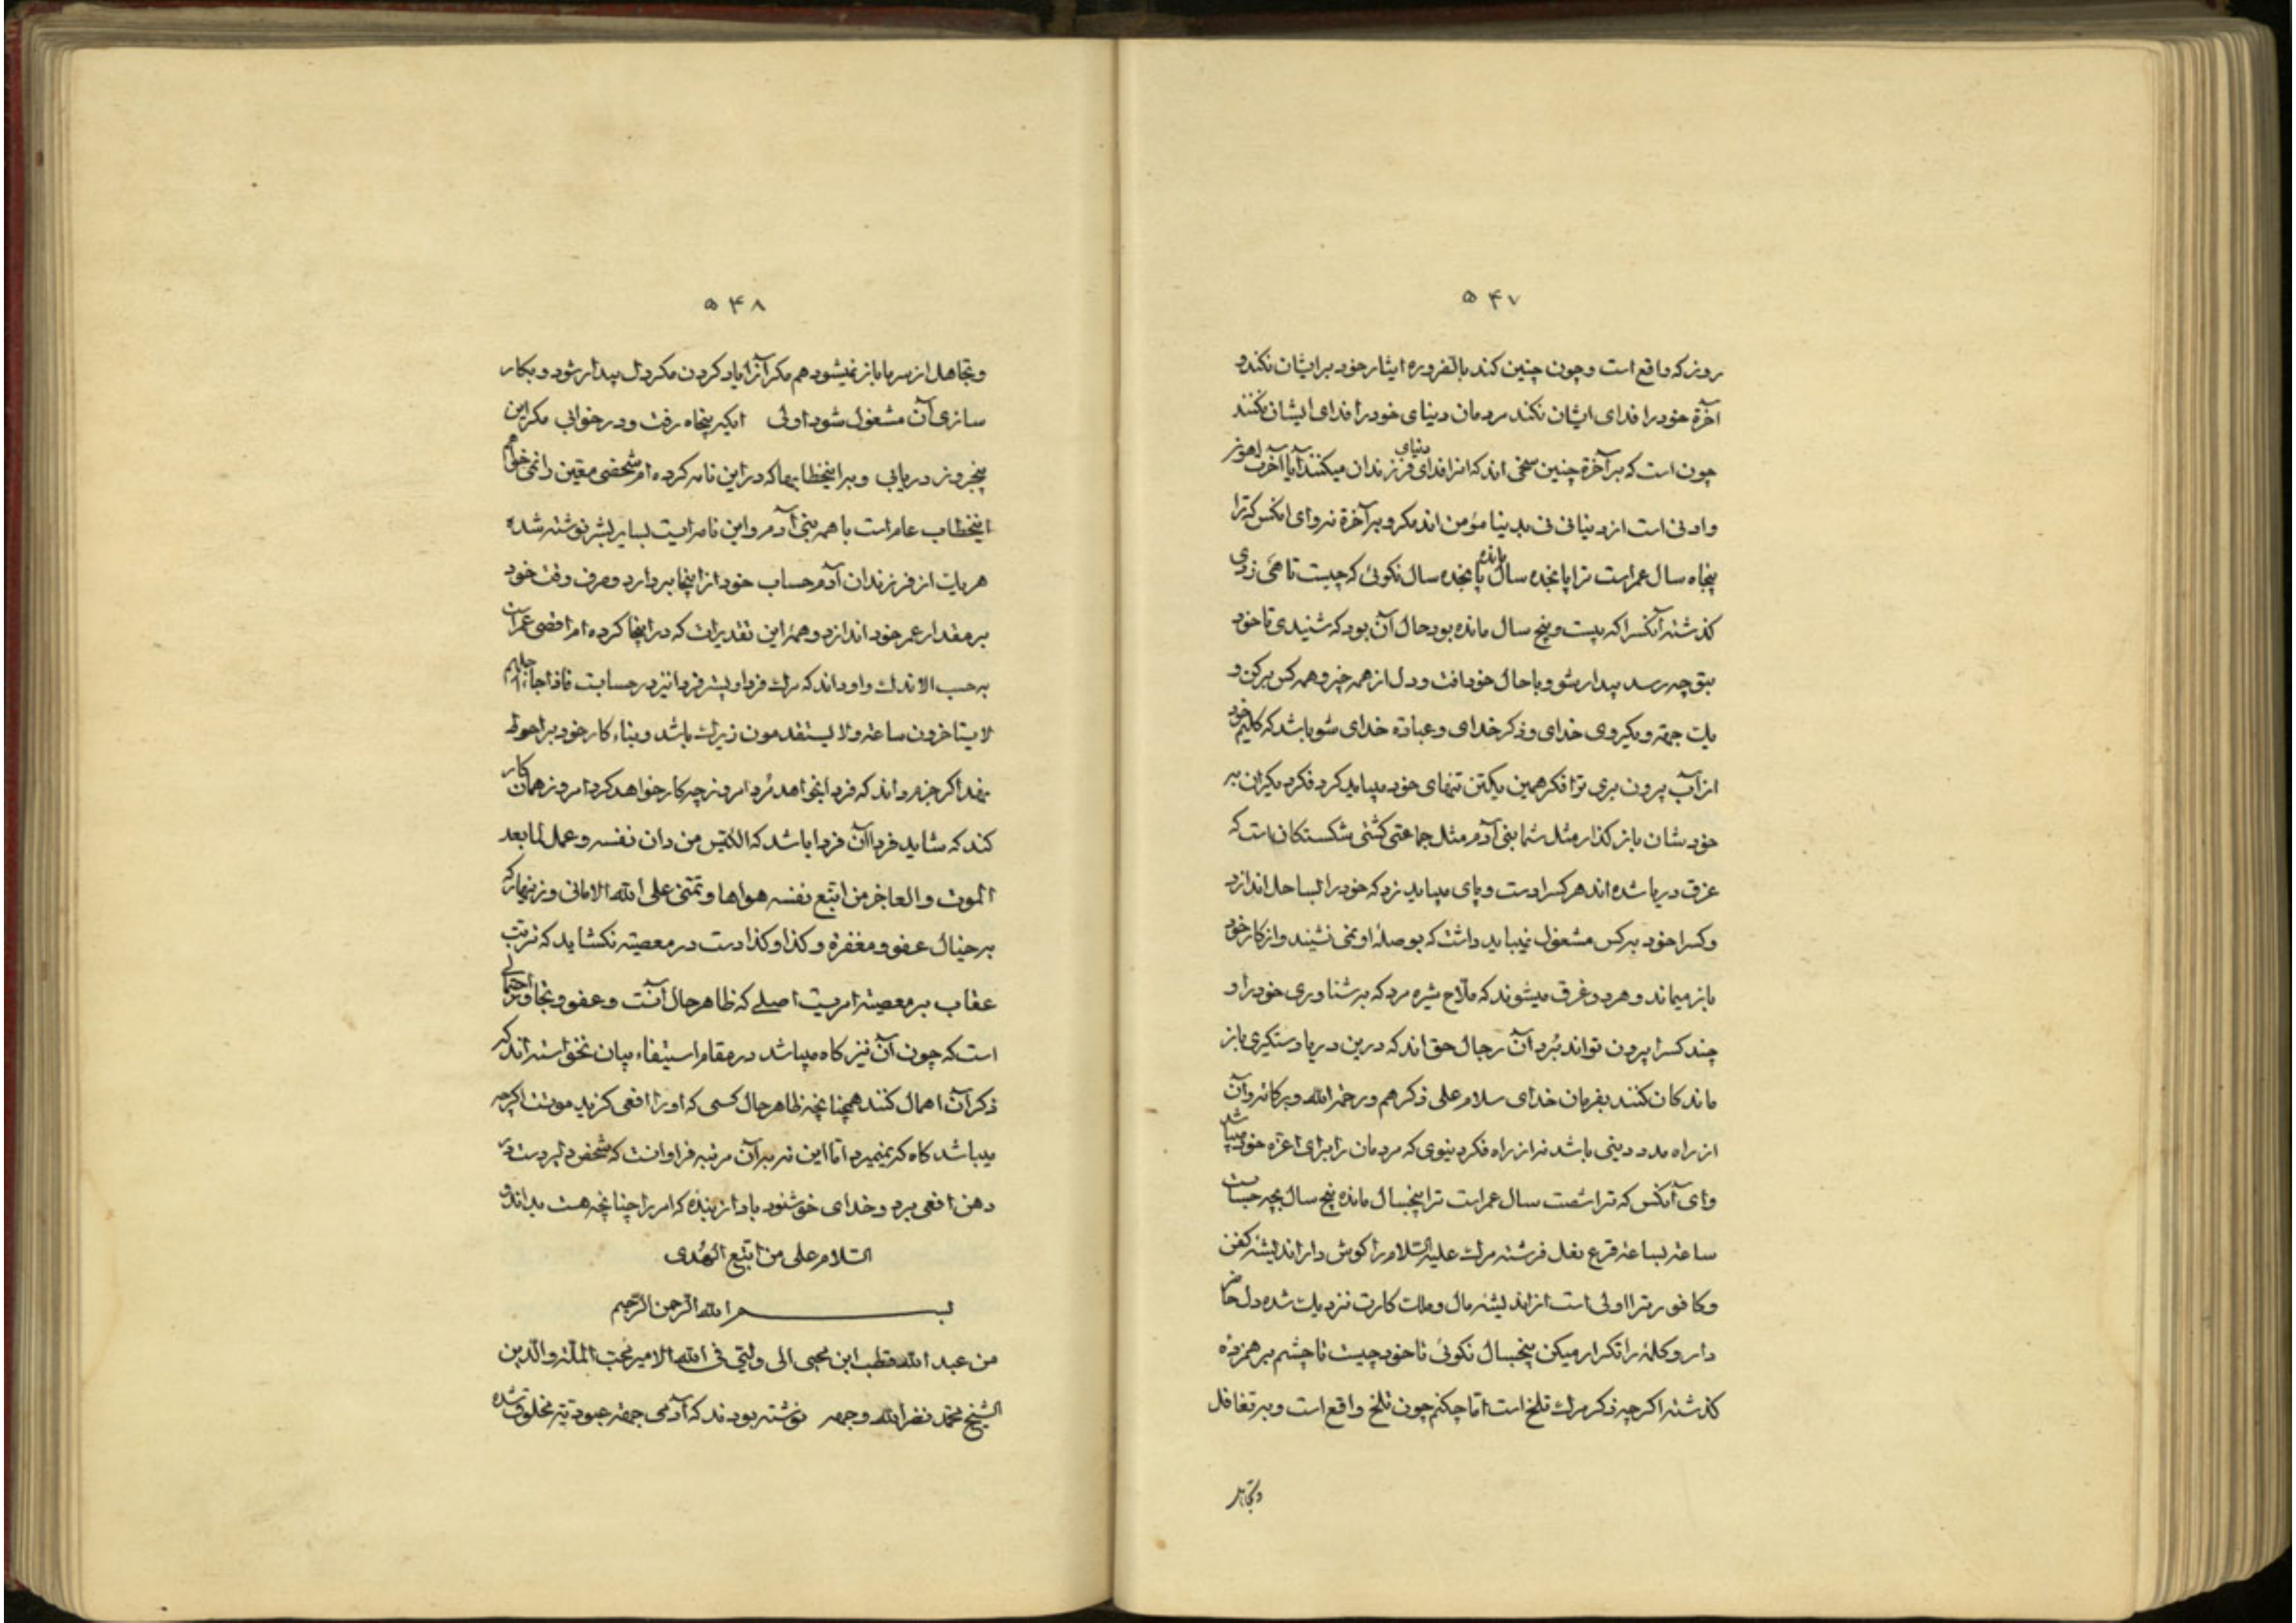 ۵۴۷
روز که واقع است و چون چنین کند بالضروره ایثار خود بر ایشان نکند و
آخرة خود را فدای ایشان نکند مردمان دنیای خود را فدای ایشان نکنند
چون است که بر آخرة چنین سخی اند که انرا فدای دنیای فرزندان میکنند آیا آخرت اهون
و ادنی است از دنیا نی نی بدنیا مؤمن اند مکر و بر آخرة نه وای انکس که ترا
پنجاه سال عمر است ترا پانجده سال مانده پانجده سال نکوئی که چیست تا همی زدی
کذشته آنکسرا که بیست و پنج سال مانده بود حال آن بود که شنیدی تا خود
بتو چه رسد بیدار شو و با حال خود افت و دل از همه چیز و همه کس برکن و
یك جهة و یکروی خدای و ذکر خدای و عبادة خدای شو باشد که کلیم خود
از آب بیرون بری ترا فکر همین یکتن تنهای خود میباید کرد فکر دیکران به
خودشان باز کذار مثل شما بنی آدم مثل جماعتی کشتی شکستکان است که
غرق دریا شده اند هرکسرا دست و پای میباید زد که خود را بساحل اندازد
و کسرا خود بر کس مشغول نمیباید داشت که بوصلهٔ او نمی نشیند و از کار خود
باز میماند و هر دو غرق میشوند که ملاح شیره مرد که بر شناوری خود را و
چند کسرا بیرون تواند برد آن رجال حق اند که درین دریا دستکیری باز
ماندکان کنند بفرمان خدای سلام علی ذکرهم و رحمة الله و برکاته و آن
از راه مدد دینی باشد نه از راه فکر دنیوی که مردمان را برای اعزه خود میباشد
وای آنکس که ترا شصت سال عمر است ترا پنجسال مانده پنج سال بچه حسابست
ساعة بساعة قرع نعل فرشته مرك علیه السلام را کوش دار اندیشه کفن
و کافور ترا اولی است از اندیشه مال و ملك کارت نزدیك شده دل حاضر
دار و کلمه را تکرار میکن پنجسال نکوئی تا خود چیست تا چشم بر هم زده
کذشته اکرچه ذکر مرك تلخ است اما چکنم چون تلخ واقع است و بر تغافل
و تجاهل
۵۴۸
و تجاهل از سر ما باز نمیشود هم مکر آنرا یاد کردن مکر دل بیدار شود و بکار
سازی آن مشغول شود اولی ایکه پنجاه رفت و در خوابی مکر این
پنجروز دریابی و بر اینخطابها که در این نامه کرده ام شخصی معین را نمی خواهم
اینخطاب عام است با همه بنی آدم و این نامه ایست بسایر بشر نوشته شده
هر یك از فرزندان آدم حساب خود از اینجا بردارد و صرف وقت خود
بر مقدار عمر خود اندازد و همهٔ این تقدیرات که در اینجا کرده ام اقصی عمر است
بر حسب الاندك و او داند که مرك فردا و پس فردا نیز در حسابست فاذا جاء اجلهم
لا یستاخرون ساعة و لا یستقدمون زیرك باشد و بناء کار خود بر احوط
نهد اکر جزم داند که فردا بخواهد مُرد امروز چه کار خواهد کرد امروز همان کار
کند که شاید فردا آن فردا باشد که الکیّس من دان نفسه و عمل لما بعد
الموت و العاجز من اتبع نفسه هواها و تمنی علی الله الامانی و زینهار که
بر خیال عفو و مغفرة و کذا و کذا دست در معصیة نکشاید که ترتب
عقاب بر معصیة امریست اصلی که ظاهر حال آنست و عفو و تجاوز احتمالی
است که چون آن نیز کاه میباشد در مقام استیفاء بیان نخواسته اند که
ذکر آن اهمال کنند همچنانچه ظاهر حال کسی که او را افعی کزید موتست اکرچه
میباشد کاه که نمیمیرد اما این نه بر آن مرتبه فراوانست که شخص دلیر دست در
دهن افعی برد و خدای خوشنود باد از بنده که امر را چنانچه هست بداند و
السلام علی من اتبع الهدی
بسم الله الرحمن الرحیم
من عبد الله قطب ابن محیی الی ولیّی فی الله الامیر نجب الملة و الدین
الشیخ محمد نضر الله وجهه نوشته بودند که آدمی جهة عبودیة مخلوق شده